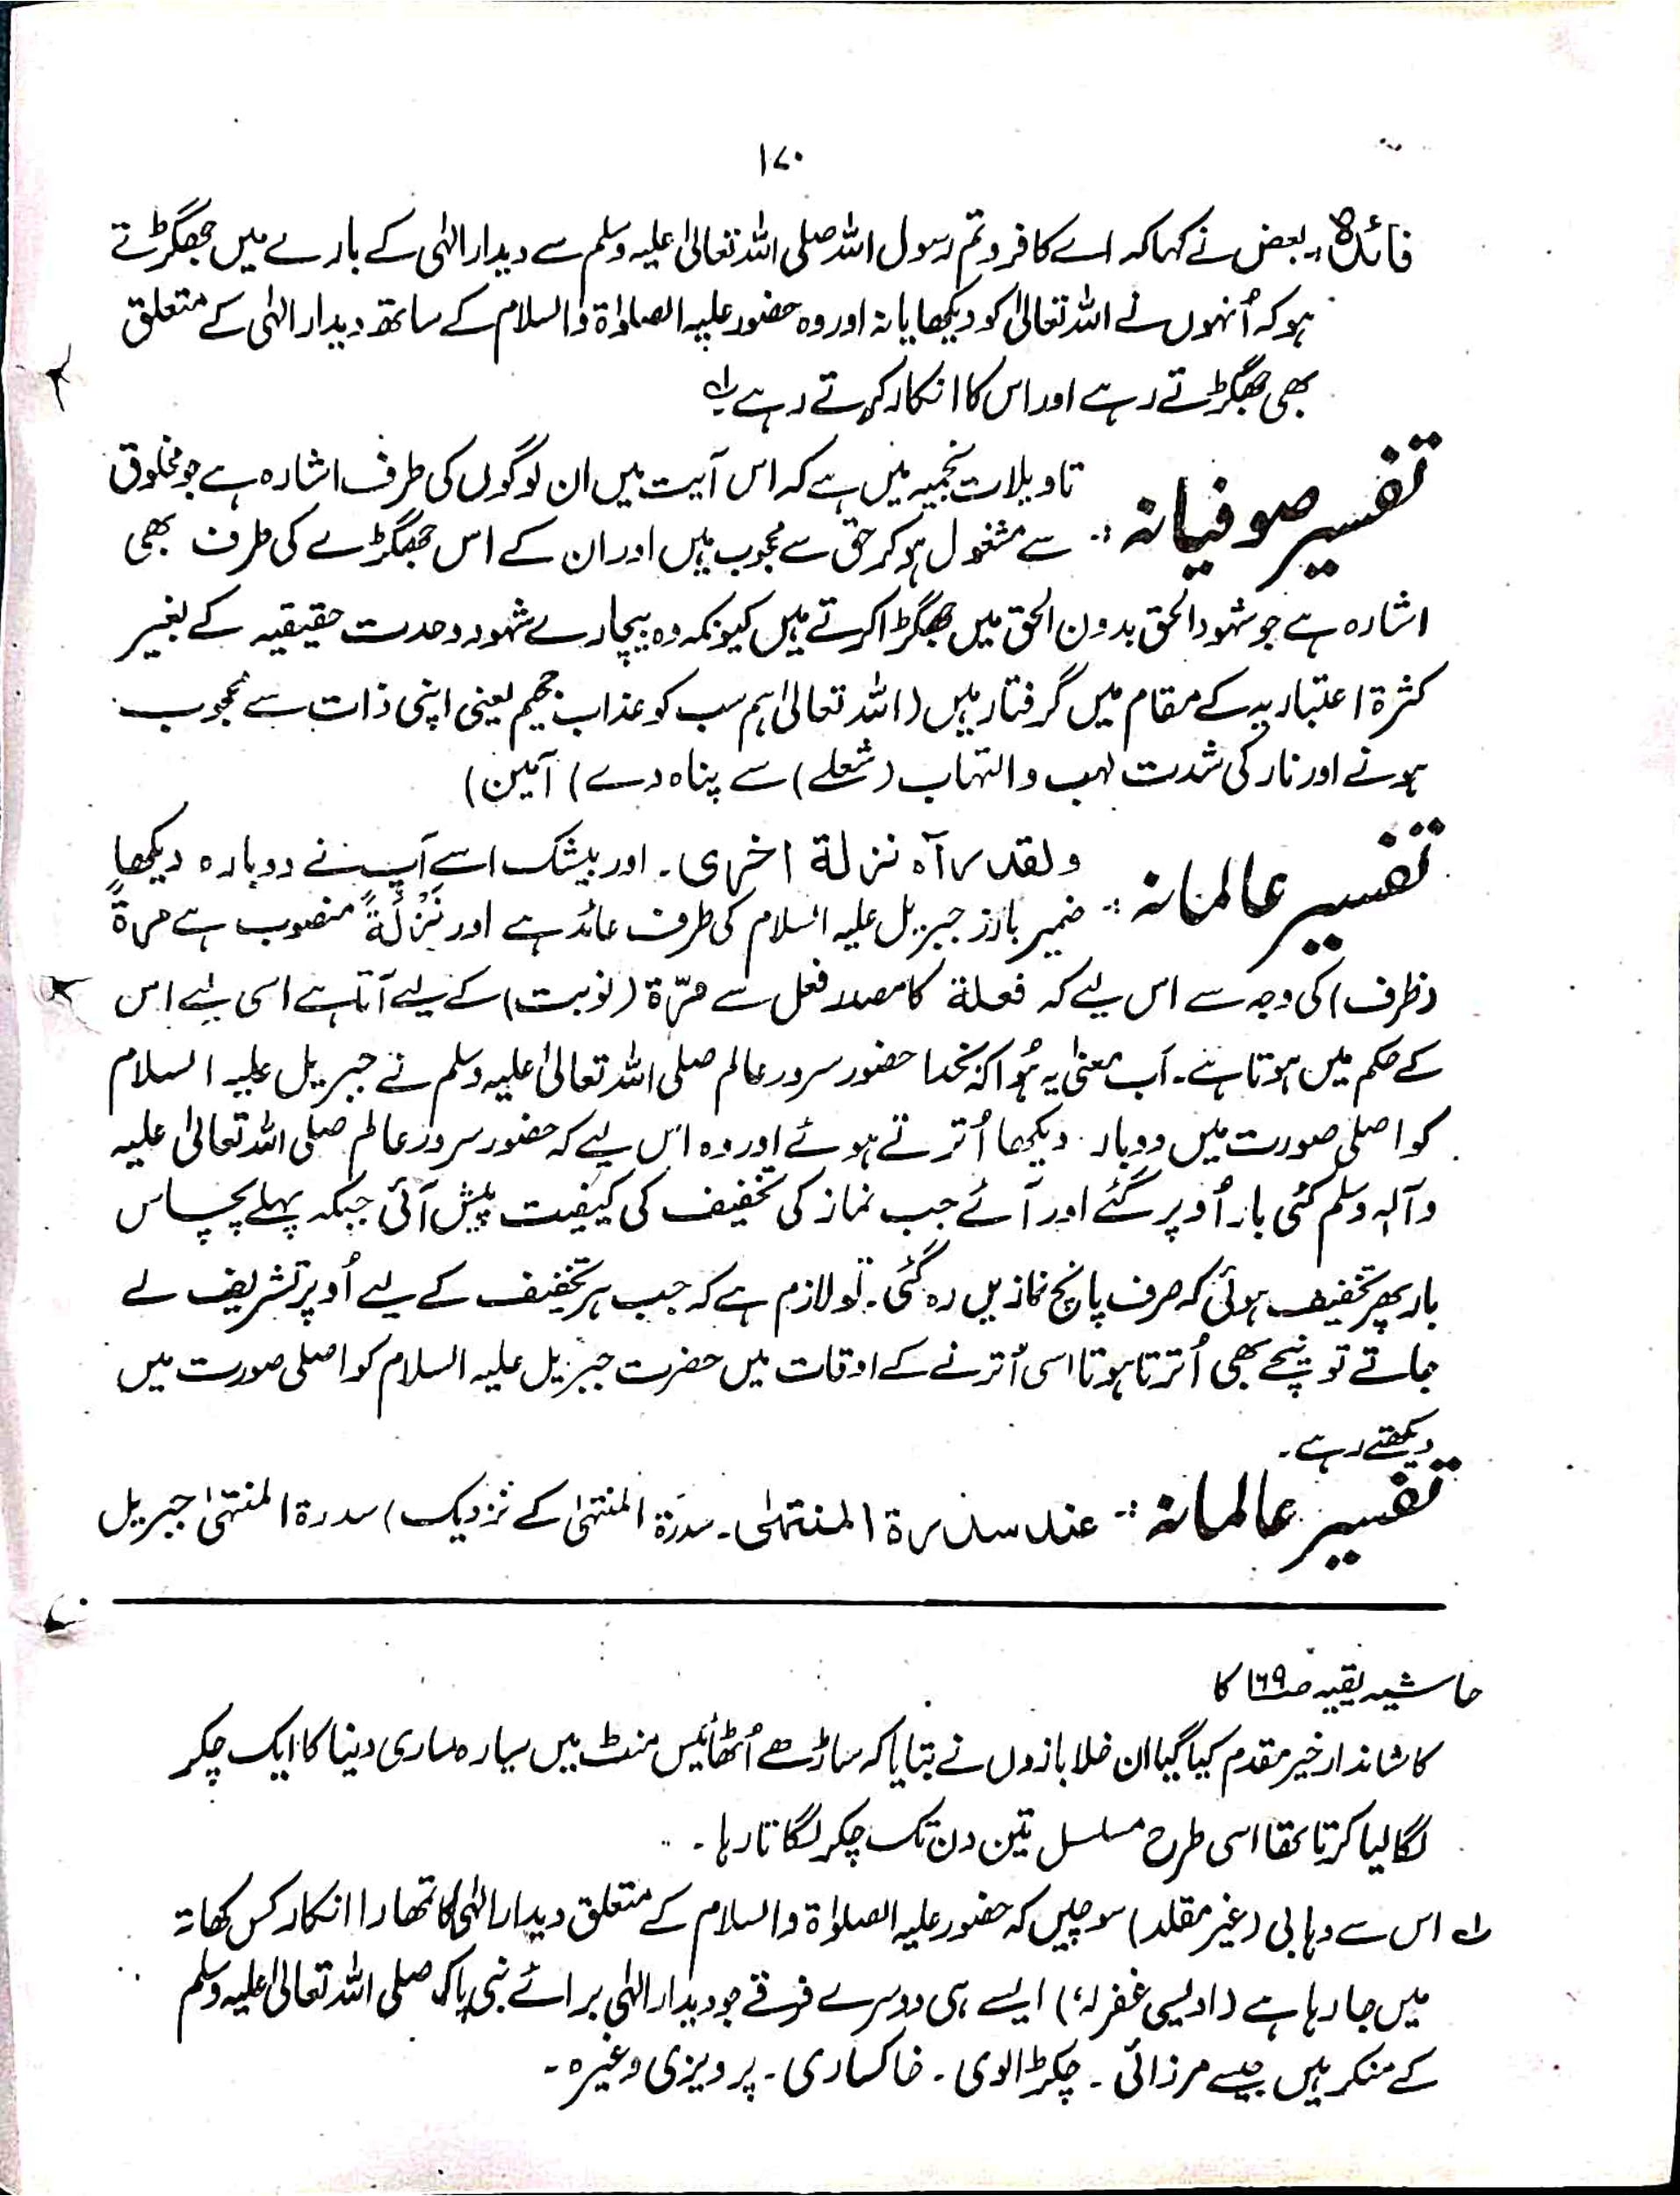 ۱۷۰
فائدہ:۔ بعض نے کہا کہ اے کافرو تم رسول اللہ صلی اللہ تعالیٰ علیہ وسلم سے دیدار الٰہی کے بارے میں جھگڑتے
ہو کہ اُنہوں نے اللہ تعالیٰ کو دیکھا یا نہ اور وہ حضور علیہ الصلوٰۃ والسلام کے ساتھ دیدار الٰہی کے متعلق
بھی جھگڑتے رہے اور اس کا انکار کرتے رہے ۱؎
تفسیر صوفیانہ:۔ تاویلات نجمیہ میں ہے کہ اس آیت میں ان لوگوں کی طرف اشارہ ہے جو مخلوق
سے مشغول ہو کر حق سے محجوب ہیں اور ان کے اس جھگڑے کی طرف بھی
اشارہ ہے جو شہود الحق بدون الحق میں جھگڑا کرتے ہیں کیونکہ وہ بیچارے شہود وحدت حقیقیہ کے بغیر
کثرۃ اعتباریہ کے مقام میں گرفتار ہیں (اللہ تعالیٰ ہم سب کو عذاب جحیم یعنی اپنی ذات سے محجوب
ہونے اور نار کی شدت لہب و التہاب (شعلے) سے پناہ دے) آمین)
تفسیر عالمانہ:۔ ولقد رآہ نزلۃ اخری۔ اور بیشک اسے آپ نے دوبارہ دیکھا
ضمیر بارز جبریل علیہ السلام کی طرف عائد ہے اور نَزْلَۃً منصوب ہے مرۃً
(ظرف) کی وجہ سے اس لیے کہ فعلۃ کا مصدر فعل سے مرّۃ (نوبت) کے لیے آتا ہے اسی لیے اس
کے حکم میں ہوتا ہے۔ اَب معنیٰ یہ ہُوا کہ بخدا حضور سرور عالم صلی اللہ تعالیٰ علیہ وسلم نے جبریل علیہ السلام
کو اصلی صورت میں دوبارہ دیکھا اُترتے ہوئے اور وہ اس لیے کہ حضور سرور عالم صلی اللہ تعالیٰ علیہ
وآلہٖ وسلم کئی بار اُوپر گئے اور آئے جب نماز کی تخفیف کی کیفیت پیش آئی جبکہ پہلے پچاس
بار پھر تخفیف ہوئی کہ صرف پانچ نمازیں رہ گئی۔ تو لازم ہے کہ جب ہر تخفیف کے لیے اُوپر تشریف لے
جاتے تو نیچے بھی اُترتا ہوتا اسی اُترنے کے اوقات میں حضرت جبریل علیہ السلام کو اصلی صورت میں
دیکھتے رہے۔
تفسیر عالمانہ:۔ عند سدرۃ المنتہیٰ۔ سدرۃ المنتہیٰ کے نزدیک) سدرۃ المنتہیٰ جبریل
حاشیہ بقیہ ص۱۶۹ کا
کا شاندار خیر مقدم کیا گیا ان خلا بازوں نے بتایا کہ ساڑھے اُٹھائیس منٹ میں سیارہ ساری دنیا کا ایک چکر
لگا لیا کرتا تھا اسی طرح مسلسل تین دن تک چکر لگاتا رہا۔
۱؎ اس سے وہابی (غیر مقلد) سوچیں کہ حضور علیہ الصلوٰۃ والسلام کے متعلق دیدار الٰہی کا تمھارا انکار کس کھاتہ
میں جا رہا ہے (اویسی غفرلہٗ) ایسے ہی دوسرے فرقے جو دیدار الٰہی برائے نبی پاک صلی اللہ تعالیٰ علیہ وسلم
کے منکر ہیں جیسے مرزائی۔ چکڑالوی۔ خاکساری۔ پرویزی وغیرہ۔